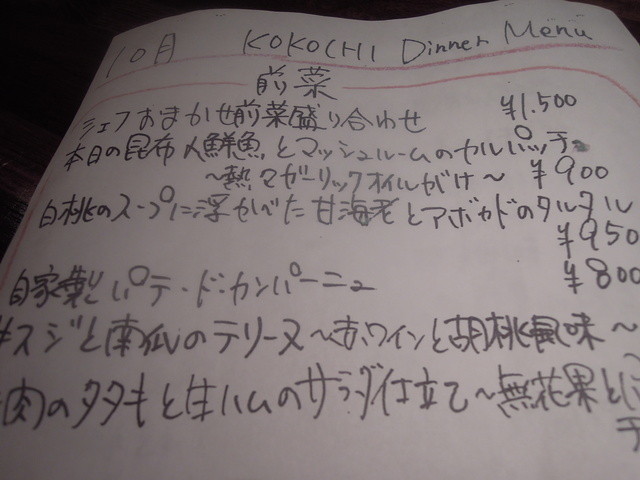 10月 KOKOCHI Dinner Menu
前菜
シェフおまかせ前菜盛り合わせ ¥1,500
本日の昆布〆鮮魚とマッシュルームのカルパッチョ
～熱々ガーリックオイルがけ～ ¥900
白桃のスープに浮かべた甘海老とアボカドのタルタル
¥950
自家製パテ・ド・カンパーニュ ¥800
スジと南瓜のテリーヌ～赤ワインと胡桃風味～
肉のタタキと生ハムのサラダ仕立て～無花果と